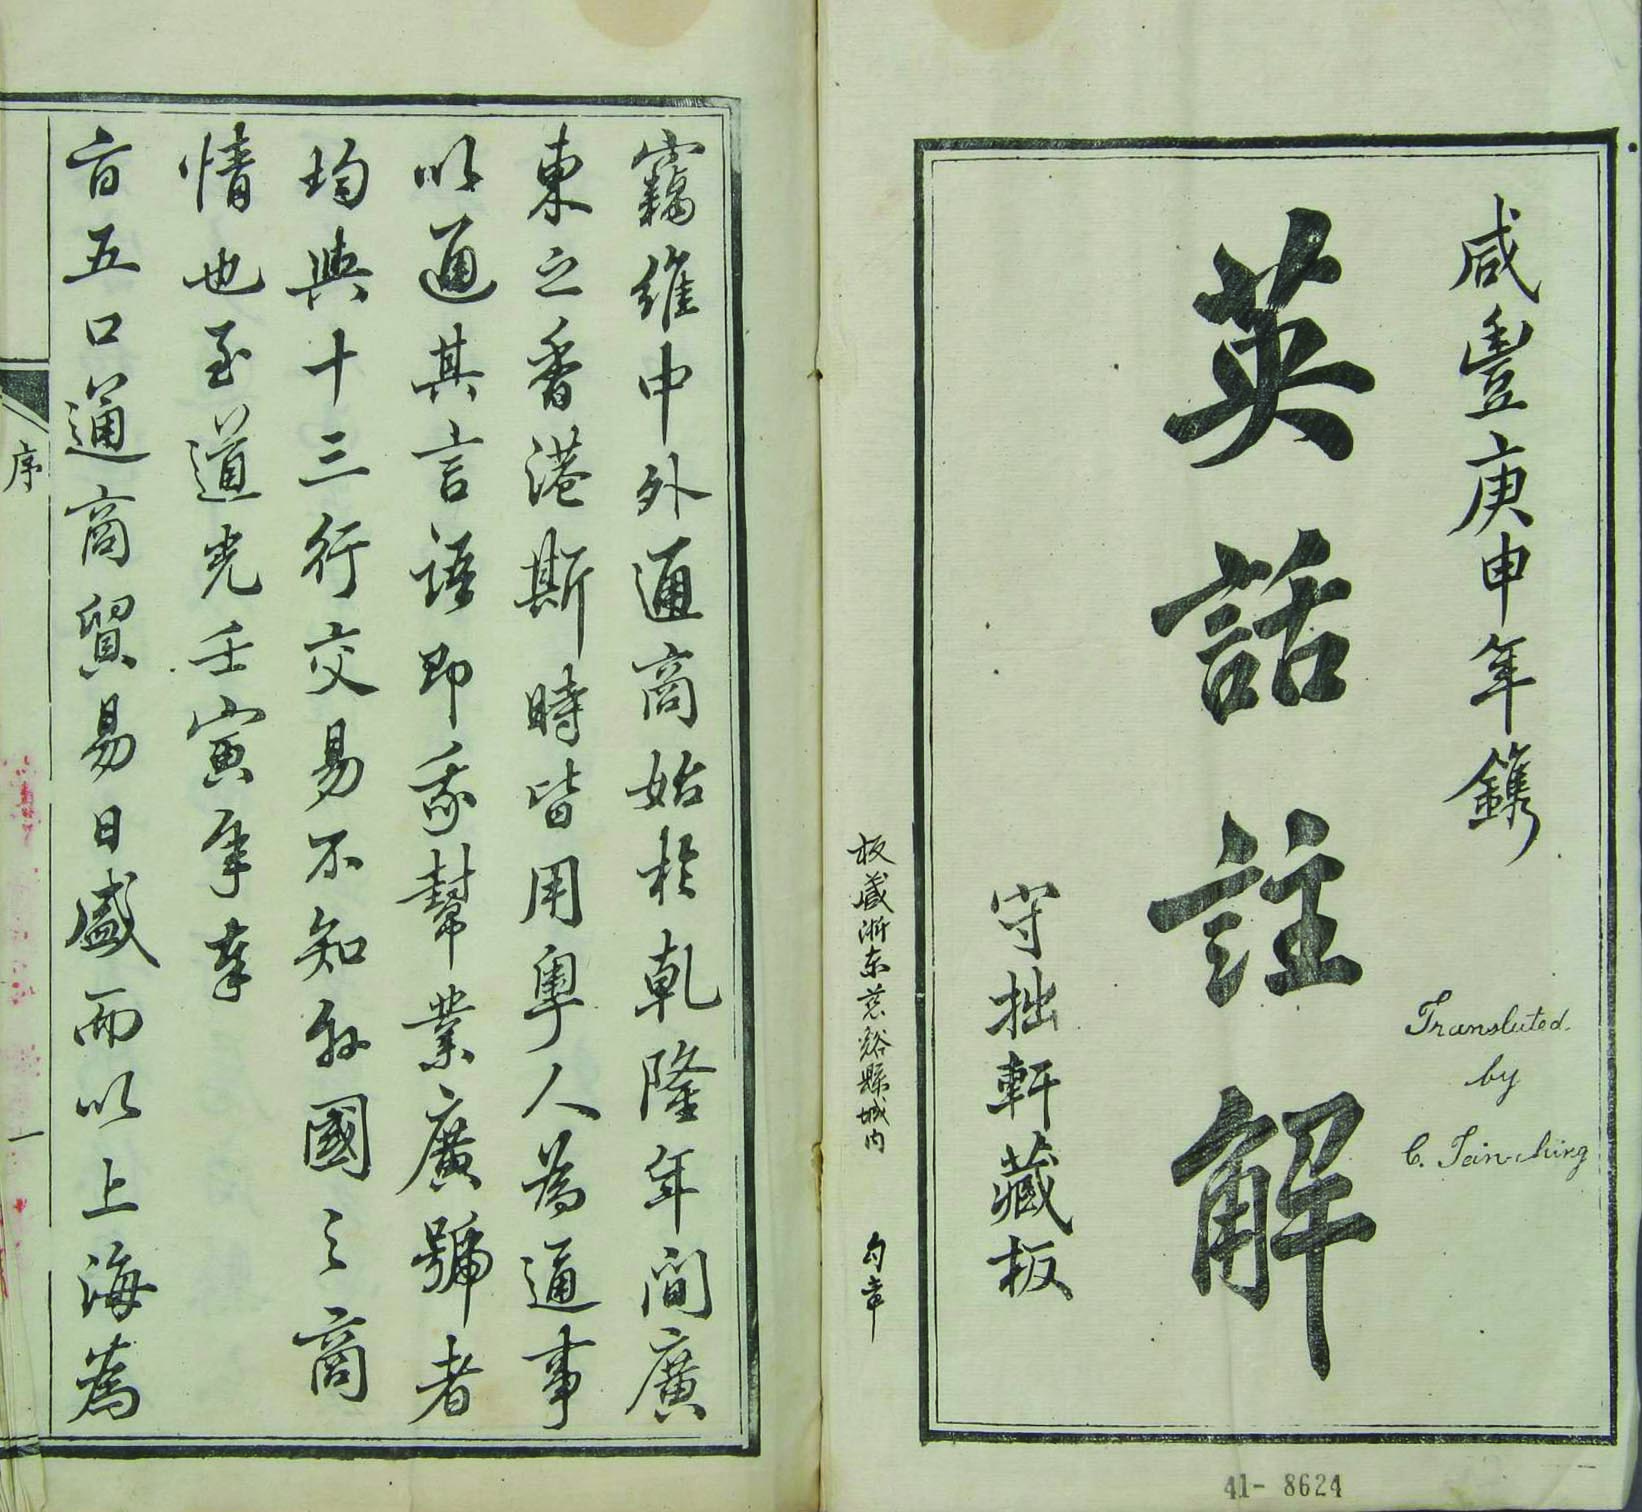 咸豐庚申年鐫
英話註解
守拙軒藏板
Translated
by
C. Tsin-ching
板藏浙东慈谿縣城内 勾章
41- 8624
竊維中外通商始於乾隆年間廣
東之香港斯時皆用粵人為通事
以通其言語即我幫業廣號者
均與十三行交易不知外國之商
情也至道光壬寅年奉
旨五口通商貿易日盛而以上海為
序
一